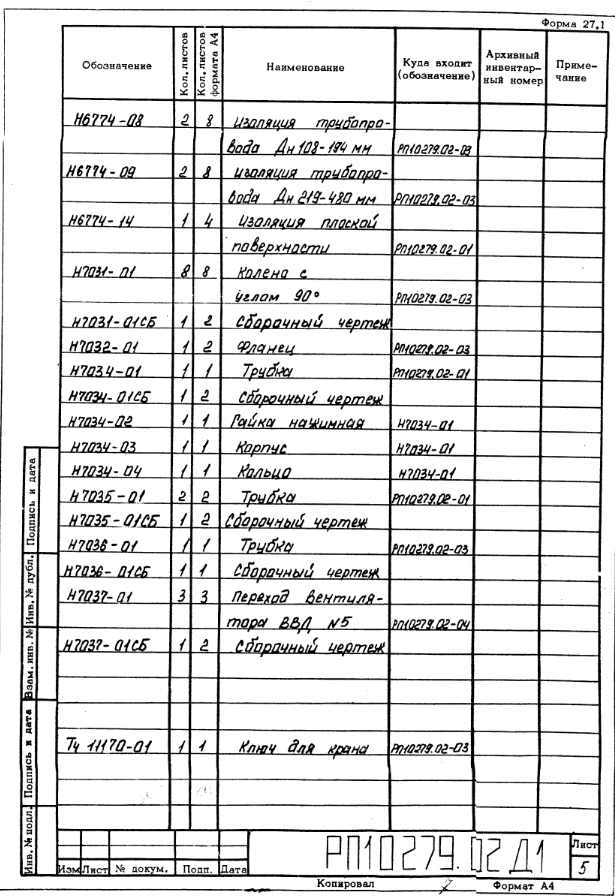 Форма 27.1
Обозначение Кол. листов Кол. листов формата А4 Наименование Куда входит (обозначение) Архивный инвентар- ный номер Приме- чание
Н6774-08 2 8 Изоляция трубопро-
вода Дн 108-194 мм РП10279.02-03
Н6774-09 2 8 Изоляция трубопро-
вода Дн 219-480 мм РП10279.02-03
Н6774-14 1 4 Изоляция плоской
поверхности РП10279.02-01
Н7031-01 8 8 Колена с
углом 90° РП10279.02-03
Н7031-01СБ 1 2 Сборочный чертеж
Н7032-01 1 2 Фланец РП10279.02-03
Н7034-01 1 1 Трубка РП10279.02-01
Н7034-01СБ 1 2 Сборочный чертеж
Н7034-02 1 1 Гайка нажимная Н7034-01
Н7034-03 1 1 Корпус Н7034-01
Н7034-04 1 1 Кольцо Н7034-01
Н7035-01 2 2 Трубка РП10279.02-01
Н7035-01СБ 1 2 Сборочный чертеж
Н7036-01 1 1 Трубка РП10279.02-03
Н7036-01СБ 1 1 Сборочный чертеж
Н7037-01 3 3 Переход вентиля-
тора ВВД N5 РП10279.02-04
Н7037-01СБ 1 2 Сборочный чертеж
Тч 11170-01 1 1 Ключ для крана РП10279.02-03
Инв. № подл. Подпись и дата Взам. инв. № Инв. № дубл. Подпись и дата
Изм Лист № докум. Подп. Дата
РП10279.02Д1
Лист
5
Копировал Формат А4